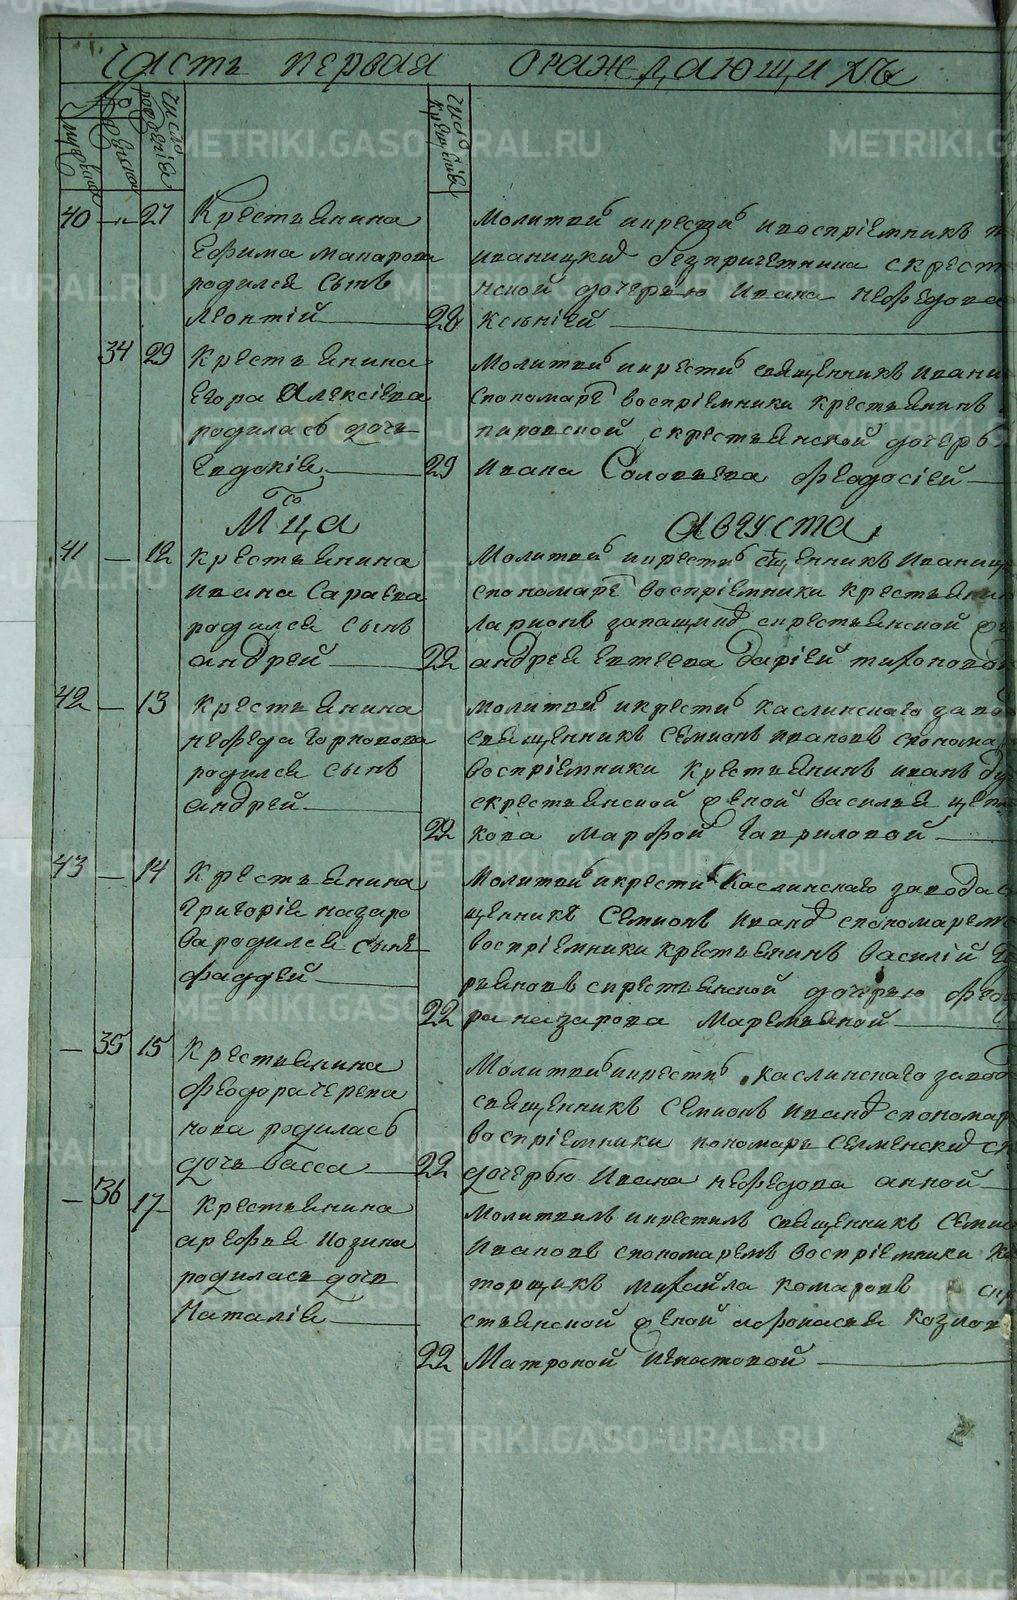 Часть первая ораждающихъ
№
мужеска
женска
число рожденія
число крещенія
40 — 27 Крестьянина
Ефима Макарова
родился сынъ
Леонтій 28
Молитвив и крестив и воспріемникъ
Иваницкій безпричетника с крест
нской дочерью Ивана Нефедова
Ксеніей
34 29 Крестьянина
Егора Алексіева
родилась дочь
Евдокія 29
Молитвив и крестив священникъ Ивани
с пономаре воспріемники крестьянинъ
с крестьянской дочерь
Ивана Соловьева Феодосіей
Мца Августа
41 — 12 Крестьянина
Ивана Сараева
родился сынъ
Андрей 22
Молитвив и крестив сщенникъ Иваниц
с пономаре воспріемники крестьянин
ларионъ с крестьянской
Андрея Евтеева Дарией Тихоновой
42 — 13 Крестьянина
Нефеда Горновова
родился сынъ
Андрей 22
Молитвив и крестив Каслинскаго заво
священникъ Семионъ Ивановъ с понома
воспріемники крестьянинъ Иванъ
с крестьянской женой Василья Щепе
кова Марфой Гавриловой
43 — 14 Крестьянина
Григорія Назаро
ва родился сынъ
Фаддей 22
Молитвив и крестив Каслинскаго завода с
щенникъ Семионъ Иванов с пономаремъ
воспріемники крестьянинъ Василій
ръяновъ с крестьянской дочерью Фео
ра Назарова Маремьяной
— 35 15 Крестьянина
Феодора Черепа
нова родилась
дочь Васса 22
Молитвив и крестив Каслинскаго завод
священникъ Семионъ Иванов с пономар
воспріемники пономарь Селменскій с
дочерью Ивана Нефедова Анной
— 36 17 Крестьянина
Арефья Козина
родилась дочь
Наталія 22
Молитвилъ и крестилъ священникъ Семио
Ивановъ с пономаремъ воспріемники ко
торщикъ Михаила Комаровъ с кр
стьянской женой Афонасья Козлов
Матроной Игнатовой
METRIKI.GASO-URAL.RU